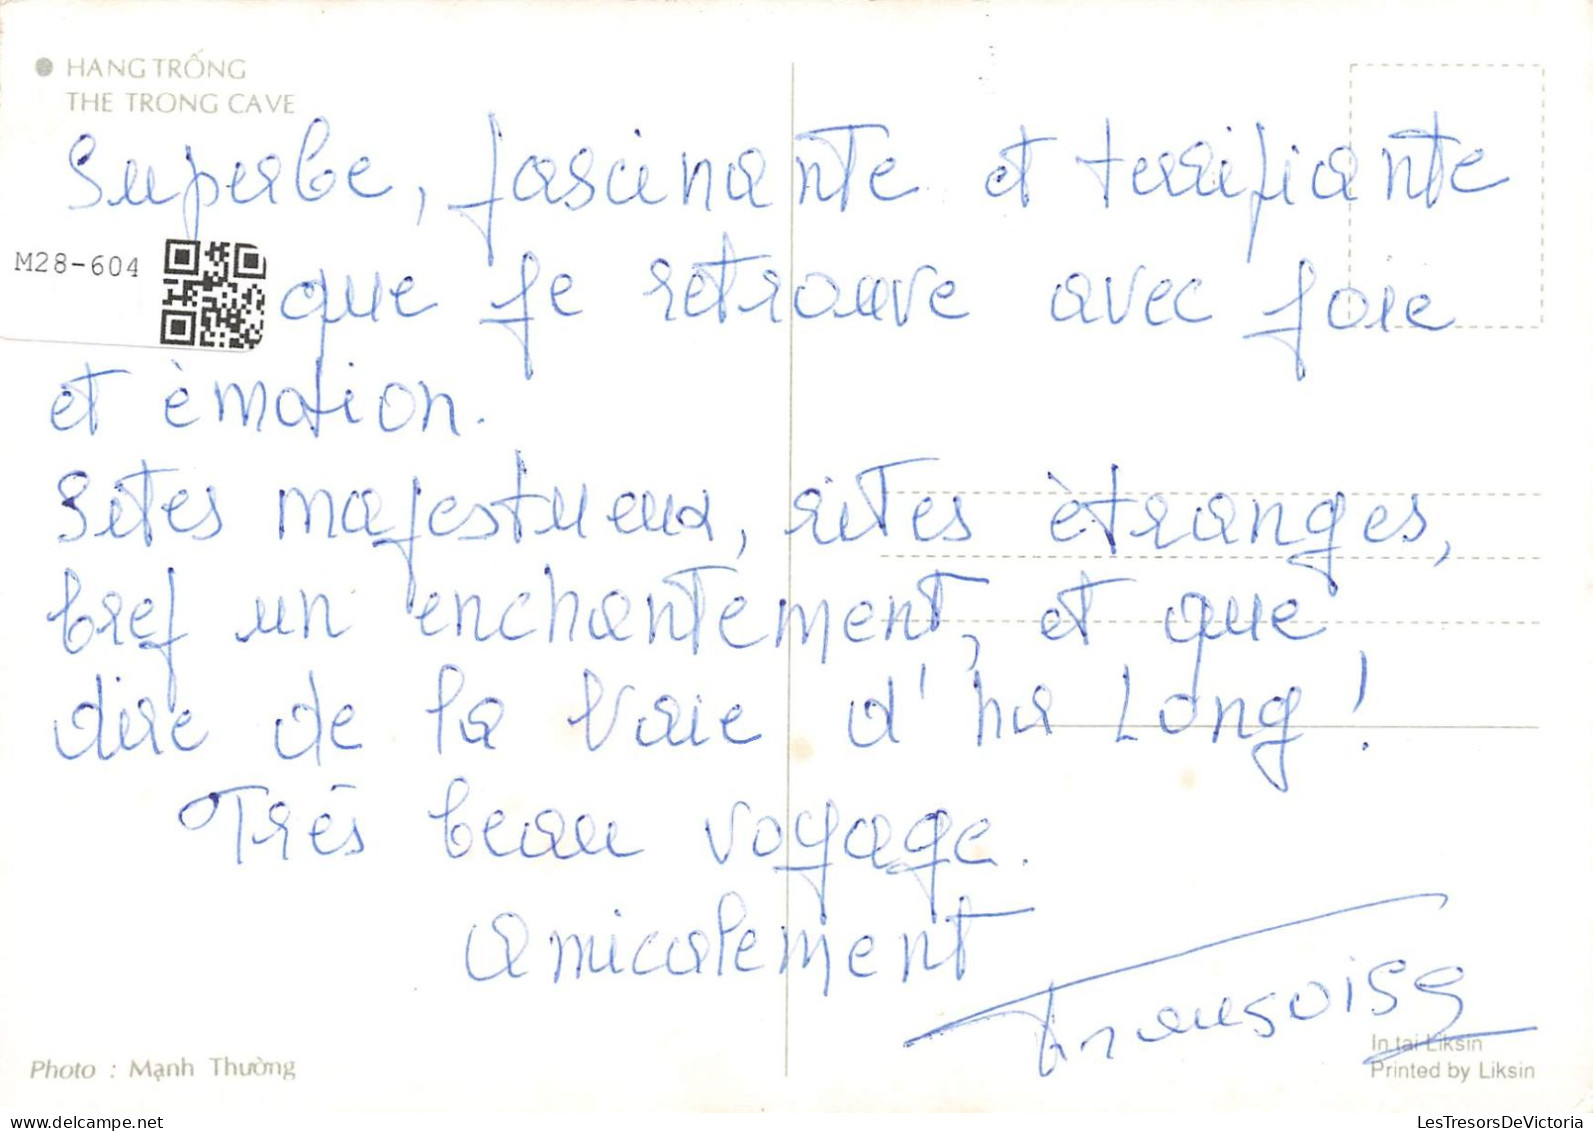 HANG TRỐNG
THE TRONG CAVE
Superbe, fascinante et terrifiante
M28-604
que je retrouve avec joie
et èmotion.
Sites majestueux, rites ètranges,
bref un enchantement, et que
dire de la baie d'ha Long !
Très beau voyage.
amicalement
Françoise
In tại Liksin
Photo : Mạnh Thường
Printed by Liksin
LesTresorsDeVictoria